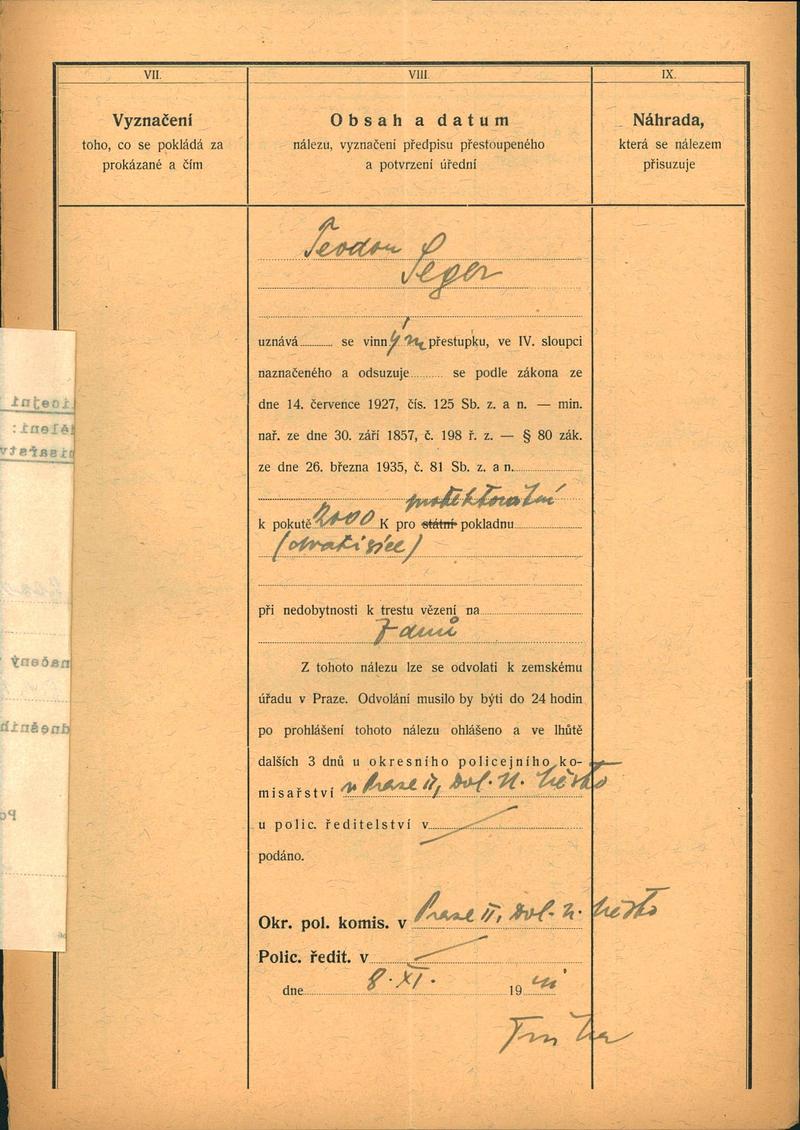 VII.
Vyznačení
toho, co se pokládá za
prokázané a čím
VIII.
Obsah a datum
nálezu, vyznačení předpisu přestoupeného
a potvrzení úřední
IX.
Náhrada,
která se nálezem
přisuzuje
Teodor
Seger
uznává se vinným přestupku, ve IV. sloupci
naznačeného a odsuzuje se podle zákona ze
dne 14. července 1927, čís. 125 Sb. z. a n. — min.
nař. ze dne 30. září 1857, č. 198 ř. z. — § 80 zák.
ze dne 26. března 1935, č. 81 Sb. z. a n.
protektorátní
k pokutě 2000 K pro státní pokladnu
(dvatisíce)
při nedobytnosti k trestu vězení na
7 dnů
Z tohoto nálezu lze se odvolati k zemskému
úřadu v Praze. Odvolání musilo by býti do 24 hodin
po prohlášení tohoto nálezu ohlášeno a ve lhůtě
dalších 3 dnů u okresního policejního ko-
misařství v Praze II, Dol. N. Město
u polic. ředitelství v
podáno.
Okr. pol. komis. v Praze II, Dol. N. Město
Polic. ředit. v
dne 8. XI. 19